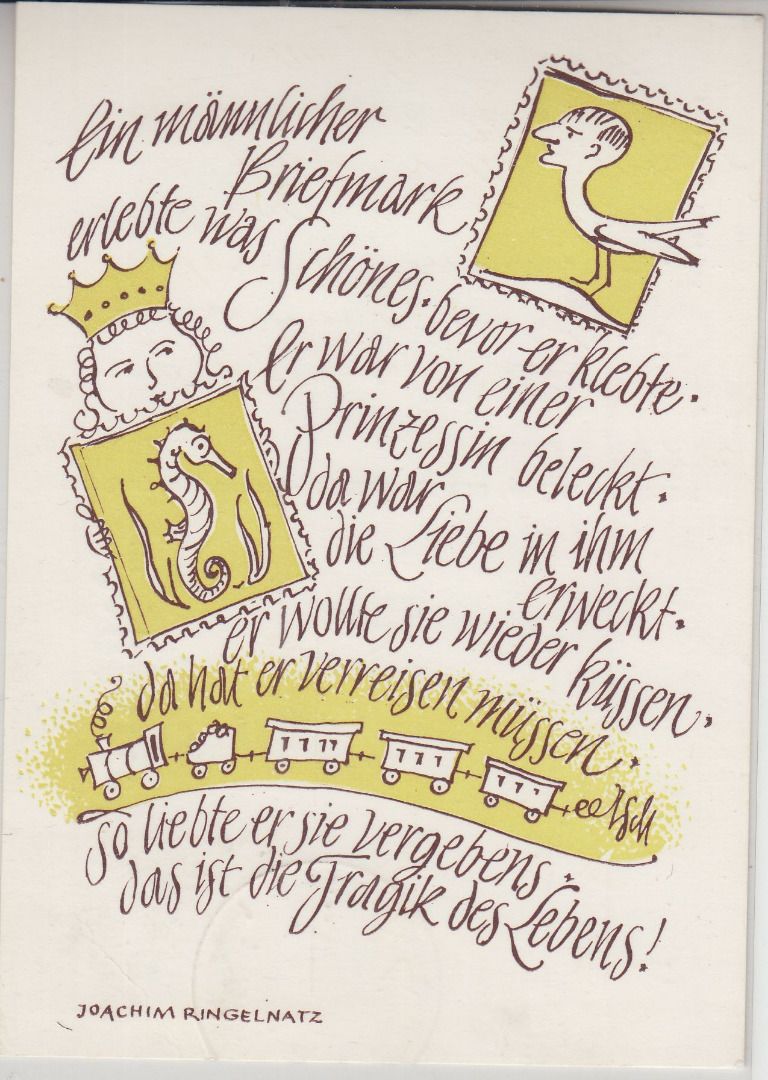 Ein männlicher
Briefmark
erlebte was
Schönes. bevor er klebte.
Er war von einer
Prinzessin beleckt.
da war
die Liebe in ihm
erweckt.
er wollte sie wieder küssen.
da hat er verreisen müssen.
so liebte er sie vergebens.
das ist die Tragik des Lebens!
JOACHIM RINGELNATZ